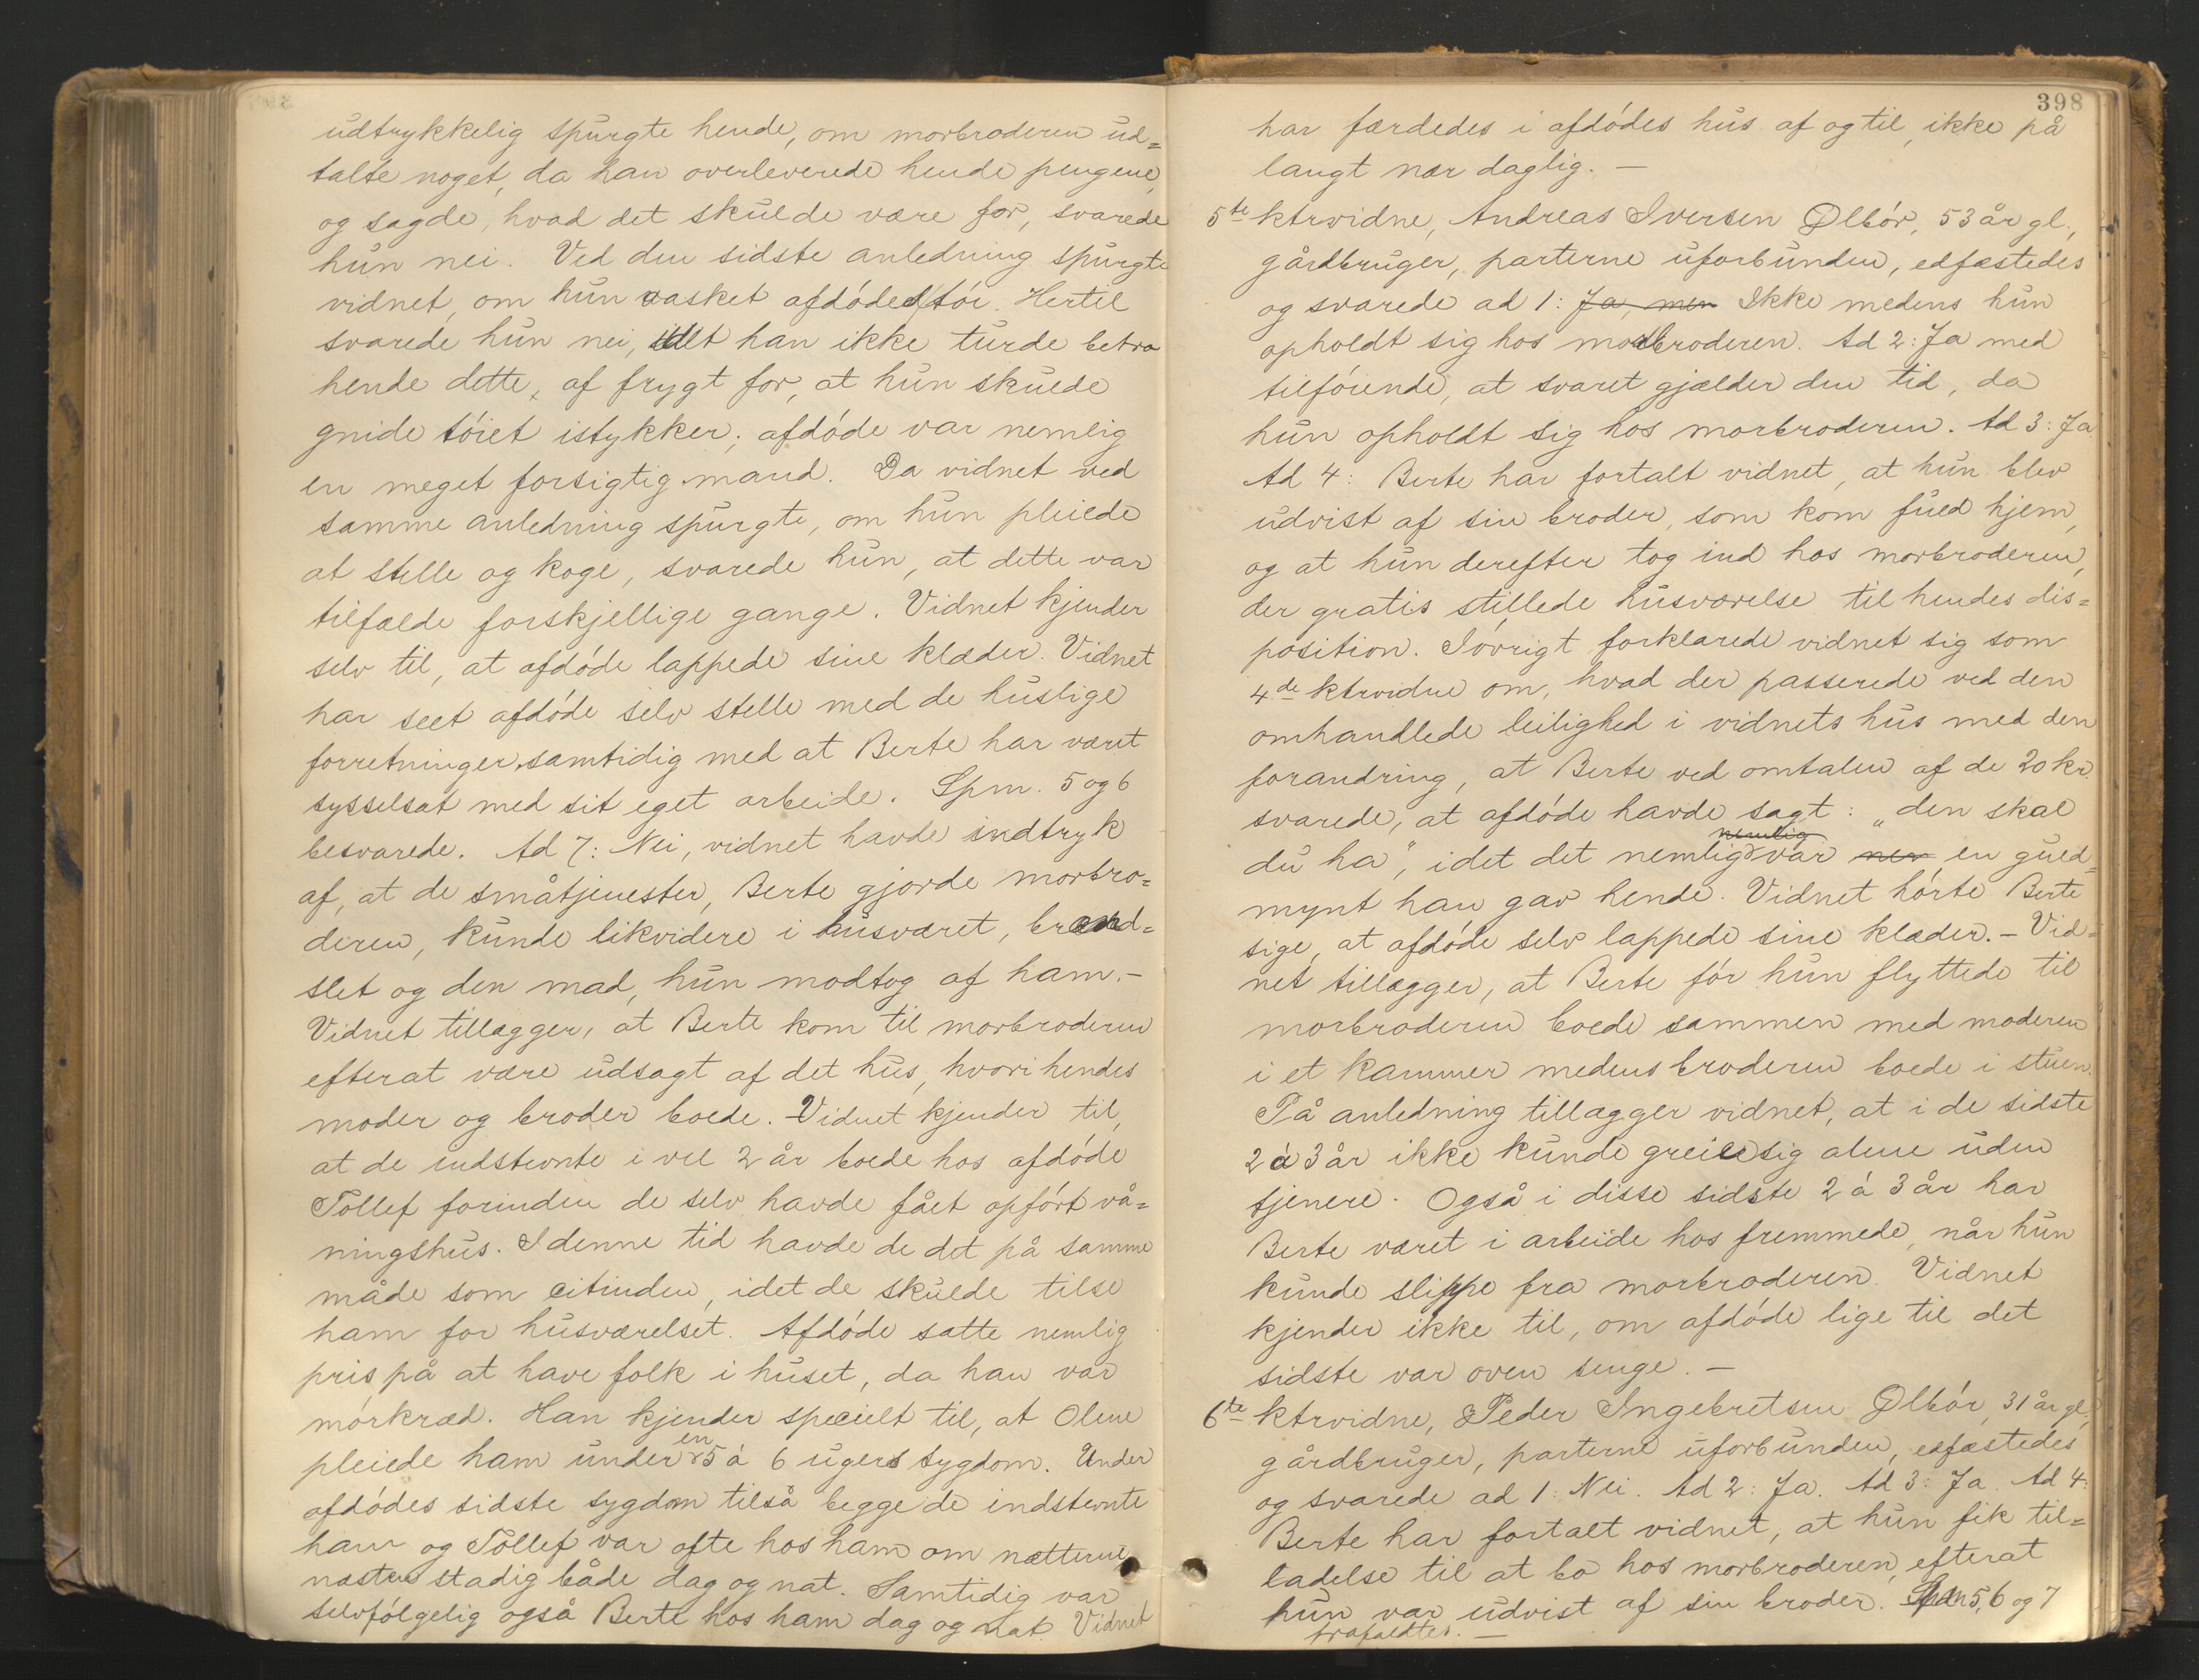 udtrykkelig spurgte hende, om morbroderen ud=
talte noget, da han overleverede hende pengene,
og sagde, hvad det skulde være for, svarede
hun nei. Ved den sidste anledning spurgte
vidnet, om hun vasket afdødes tøi. Hertil
svarede hun nei, idet han ikke turde betro
hende dette, af frygt for, at hun skulde
gnide tøiet istykker; afdøde var nemlig
en meget forsigtig mand. Da vidnet ved
samme anledning spurgte, om hun pleiede
at stelle og koge, svarede hun, at dette var
tilfælde forskjellige gange. Vidnet kjender
selv til, at afdøde lappede sine klæder. Vidnet
har seet afdøde selv stelle med de huslige
forretninger samtidig med at Berte har været
sysselsat med sit eget arbeide. Spm. 5 og 6
besvarede. Ad 7: Nei, vidnet havde indtryk
af, at de småtjenester, Berte gjorde morbro=
deren, kunde likvidere i husværet, brænd=
slet og den mad, hun modtog af ham.–
Vidnet tillægger, at Berte kom til morbroderen
efterat være udsagt af det hus, hvori hendes
moder og broder boede. Vidnet kjender til,
at de indstevnte i vel 2 år boede hos afdøde
Tollef forinden de selv havde fået opført vå=
ningshus. I denne tid havde de det på samme
måde som citinden, idet de skulde tilse
ham for husværelset. Afdøde satte nemlig
pris på at have folk i huset, da han var
mørkræd. Han kjender specielt til, at Olene
pleiede ham under en 5 à 6 ugers sygdom. Under
afdødes sidste sygdom tilså begge de indstevnte
ham og Tollef var ofte hos ham om nætterne
næsten stadig både dag og nat. Samtidig var
selvfølgelig også Berte hos ham dag og nat. Vidnet
398
har færdedes i afdødes hus af og til, ikke på
langt nær daglig. –
5te ktrvidne, Andreas Iversen Ølbør, 53 år gl.,
gårdbruger, parterne uforbunden, edfæstedes
og svarede ad 1: Ja, men Ikke medens hun
opholdt sig hos morbroderen. Ad 2: Ja med
tilføiende, at svaret gjælder den tid, da
hun opholdt sig hos morbroderen. Ad 3: Ja.
Ad 4: Berte har fortalt vidnet, at hun blev
udvist af sin broder, som kom fuld hjem,
og at hun derefter tog ind hos morbroderen,
der gratis stillede husværelse til hendes dis=
position. Iøvrigt forklarede vidnet sig som
4de ktrvidne om, hvad der passerede ved den
omhandlede leilighed i vidnets hus med den
forandring, at Berte ved omtalen af de 20 kr.
svarede, at afdøde havde sagt: „den skal
nemlig
du ha", idet det nemlig var en guld=
mynt han gav hende. Vidnet hørte Berte
sige, at afdøde selv lappede sine klæder. – Vid=
net tillægger, at Berte før hun flyttede til
morbroderen boede sammen med moderen
i et kammer medens broderen boede i stuen.
På anledning tillægger vidnet, at i de sidste
2 à 3 år ikke kunde greie sig alene uden
tjenere. Også i disse sidste 2 à 3 år har
Berte været i arbeide hos fremmede, når hun
kunde slippe fra morbroderen. Vidnet
kjender ikke til, om afdøde lige til det
sidste var oven senge. –
6te ktrvidne, Peder Ingebretsen Ølbør, 31 år gl.,
gårdbruger, parterne uforbunden, edfæstedes
og svarede ad 1: Nei. Ad 2: Ja. Ad 3: Ja. Ad 4:
Berte har fortalt vidnet, at hun fik til=
ladelse til at bo hos morbroderen, efterat
hun var udvist af sin broder. Spm 5, 6 og 7
frafaldtes. –